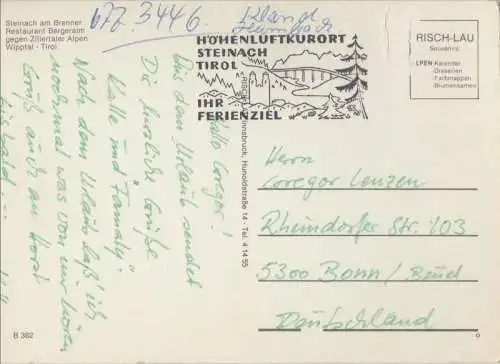 Steinach am Brenner
Restaurant Bergeralm
gegen Zillertaler Alpen
Wipptal - Tirol
677.3446
HÖHENLUFTKURORT
STEINACH
TIROL
IHR
FERIENZIEL
RISCH-LAU
Souvenirs:
LPEN-Kalender
Drexerien
Farbmappen
Innsbruck, Hunoldstraße 14 - Tel. 4 14 55
Hallo Gregor!
Aus dem Urlaub sendet
Dir herzliche Grüße
Kalle und Family
Nach dem Urlaub laß' ich
nochmal was von mir hören
Gruß auch an Horst
Bis bald...
Herrn
Gregor Lenzen
Rheindorfer Str. 103
5300 Bonn / Beuel
Deutschland
B 362